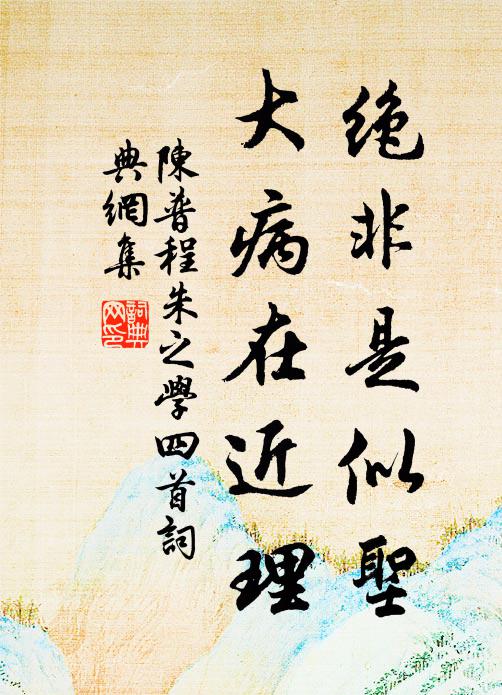 绝非是似聖
大病在近理
陳普程朱之學四首詞
典網集
詞典
网印